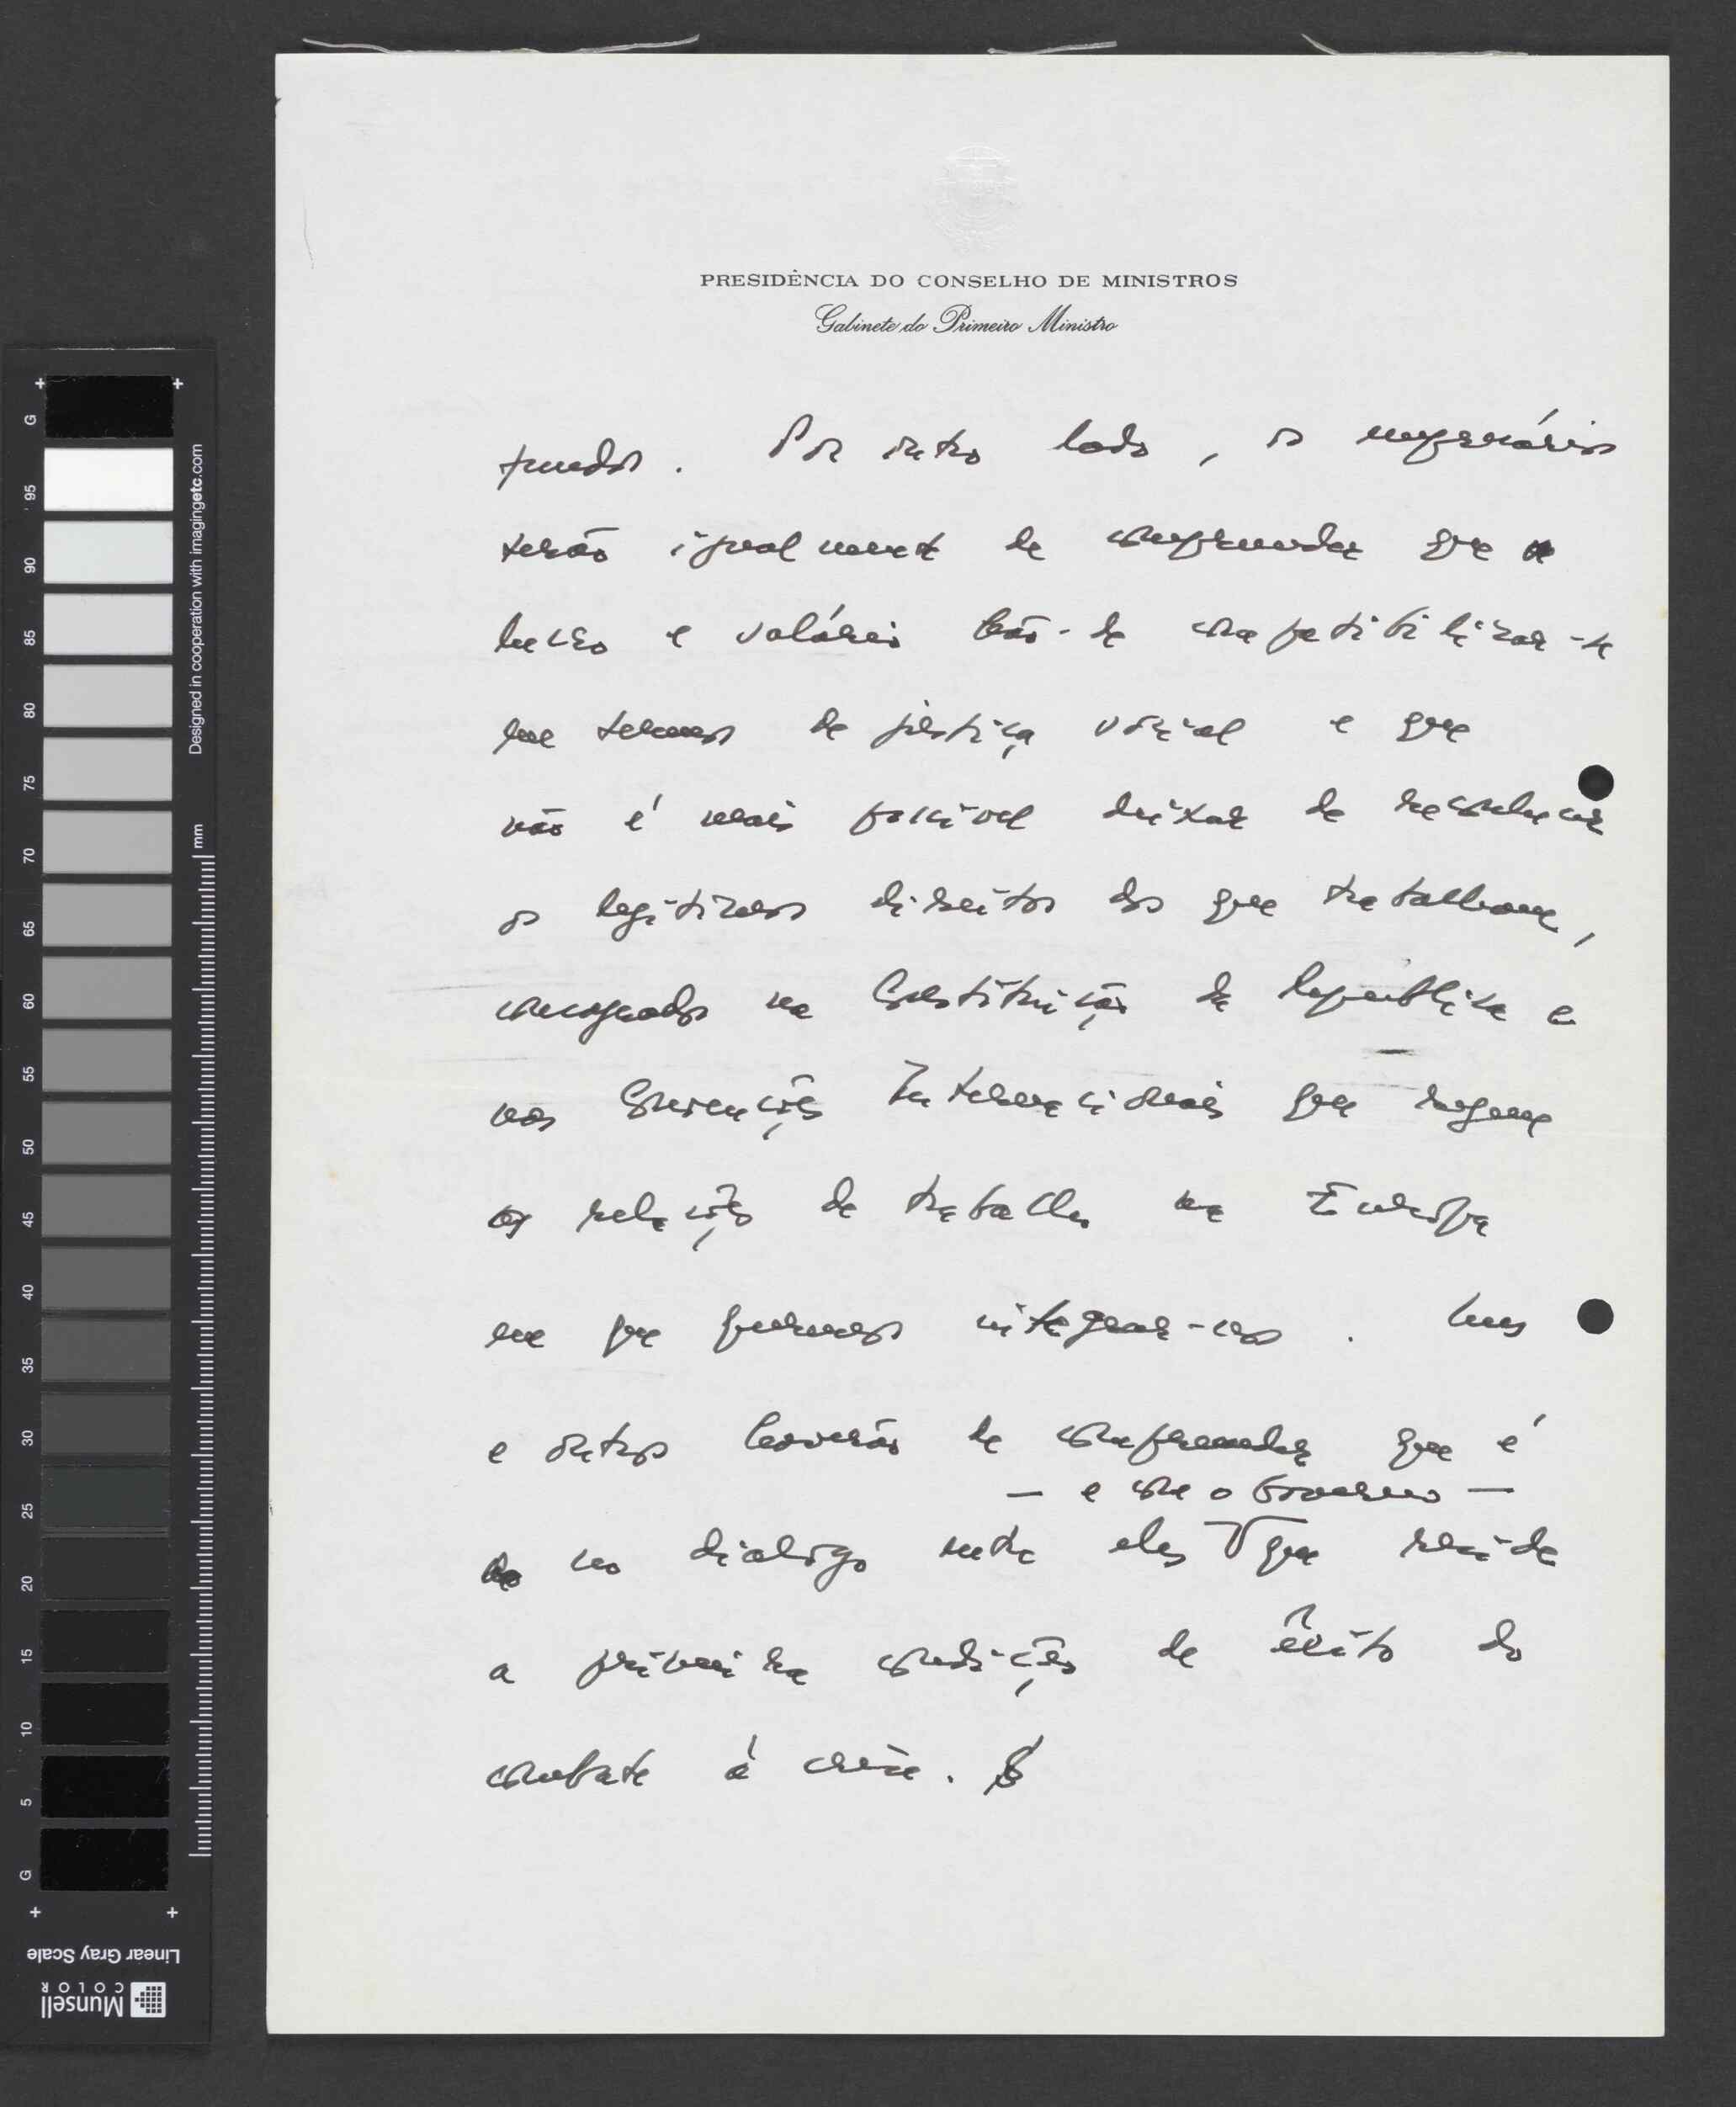 PRESIDÊNCIA DO CONSELHO DE MINISTROS
Gabinete do Primeiro Ministro
. Por outro lado, os empresários
terão igualmente de compreender que
lucro e salários hão-de compatibilizar-se
em termos de justiça social e que
não é mais possível deixar de reconhecer
os legítimos direitos dos que trabalham,
consagrados na Constituição da República e
nas Convenções Internacionais que regem
as relações de trabalho na Europa
em que queremos integrar-nos. Uns
e outros haverão de compreender que é
— e com o Governo —
no diálogo entre eles que reside
a primeira condição de êxito do
combate à crise.
G 95 90 85 80 75 70 65 60 55 50 45 40 35 30 25 20 15 10 5 G
Designed in cooperation with imagingetc.com
mm
Linear Gray Scale
Munsell
COLOR